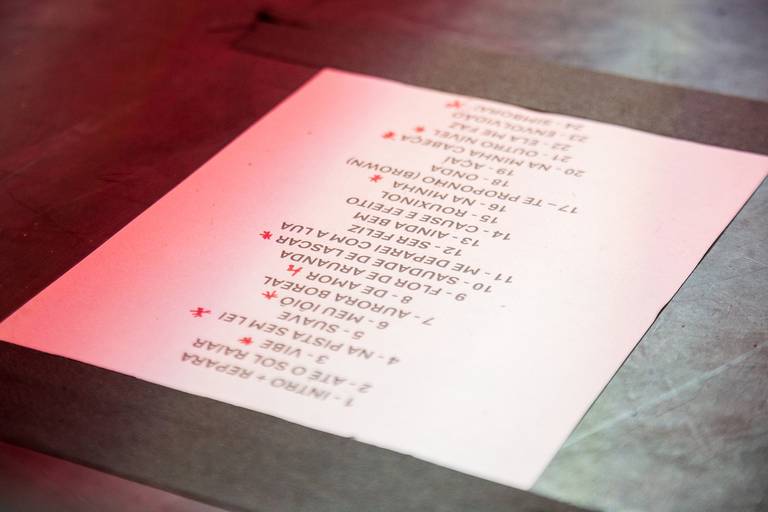 1 - INTRO + REPARA
2 - ATÉ O SOL RAIAR
3 - VIBE *
4 - NA PISTA SEM LEI *
5 - SUAVE
6 - MEU IÔIÔ
7 - AURORA BOREAL *
8 - DE AMOR
9 - FLOR DE ARUANDA
10 - SAUDADE DE LASCAR
11 - ME DEPAREI COM A LUA *
12 - SER FELIZ
13 - AINDA BEM
14 - CAUSE E EFEITO
15 - ROUXINOL
16 - NA MINHA *
17 - TE PROPONHO (BROWN)
18 - ONDA
19 - AÇAÍ
20 - NA MINHA CABEÇA *
21 - OUTRO NÍVEL *
22 - ELA ME FAZ
23 - ENVOLVIDÃO
24 - SIMBORA! *